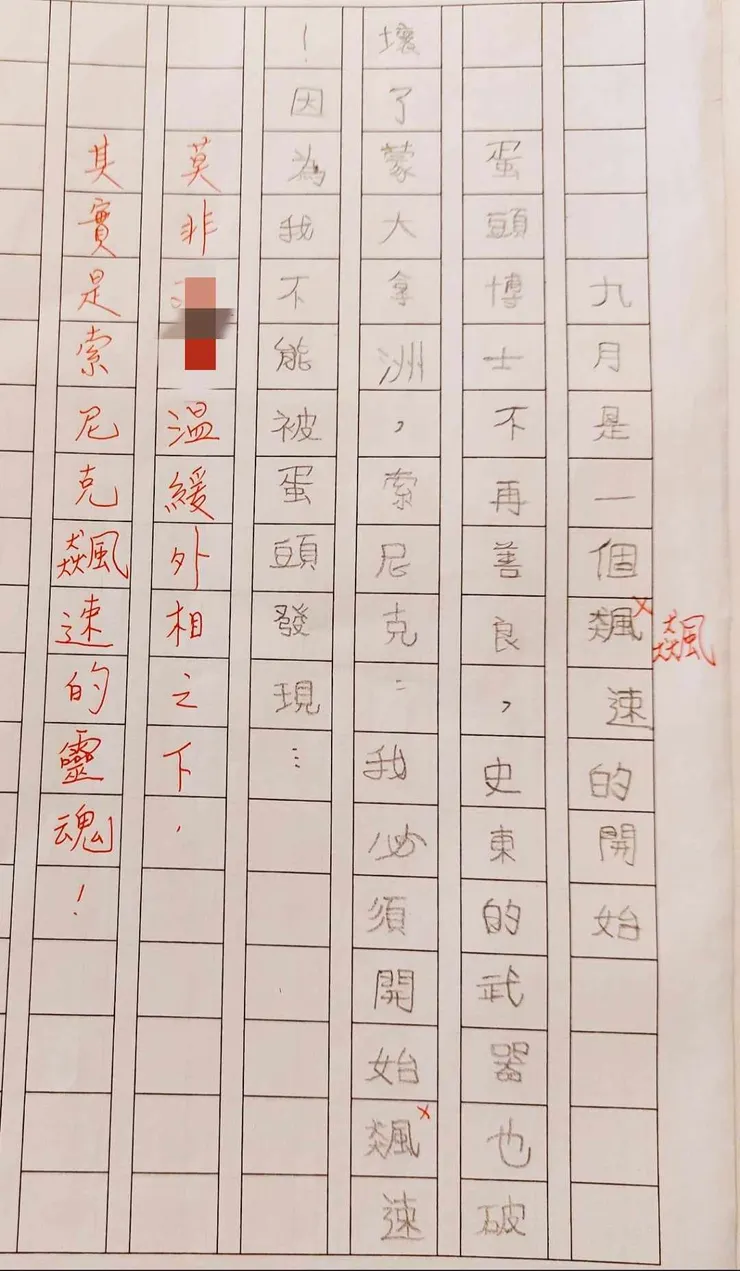 九月是一個飆速的開始
飆
蛋頭博士不再善良，史東的武器也破
壞了蒙大拿洲，索尼克：我必須開始飆速
！因為我不能被蛋頭發現…
莫非溫緩外相之下，
其實是索尼克飆速的靈魂！